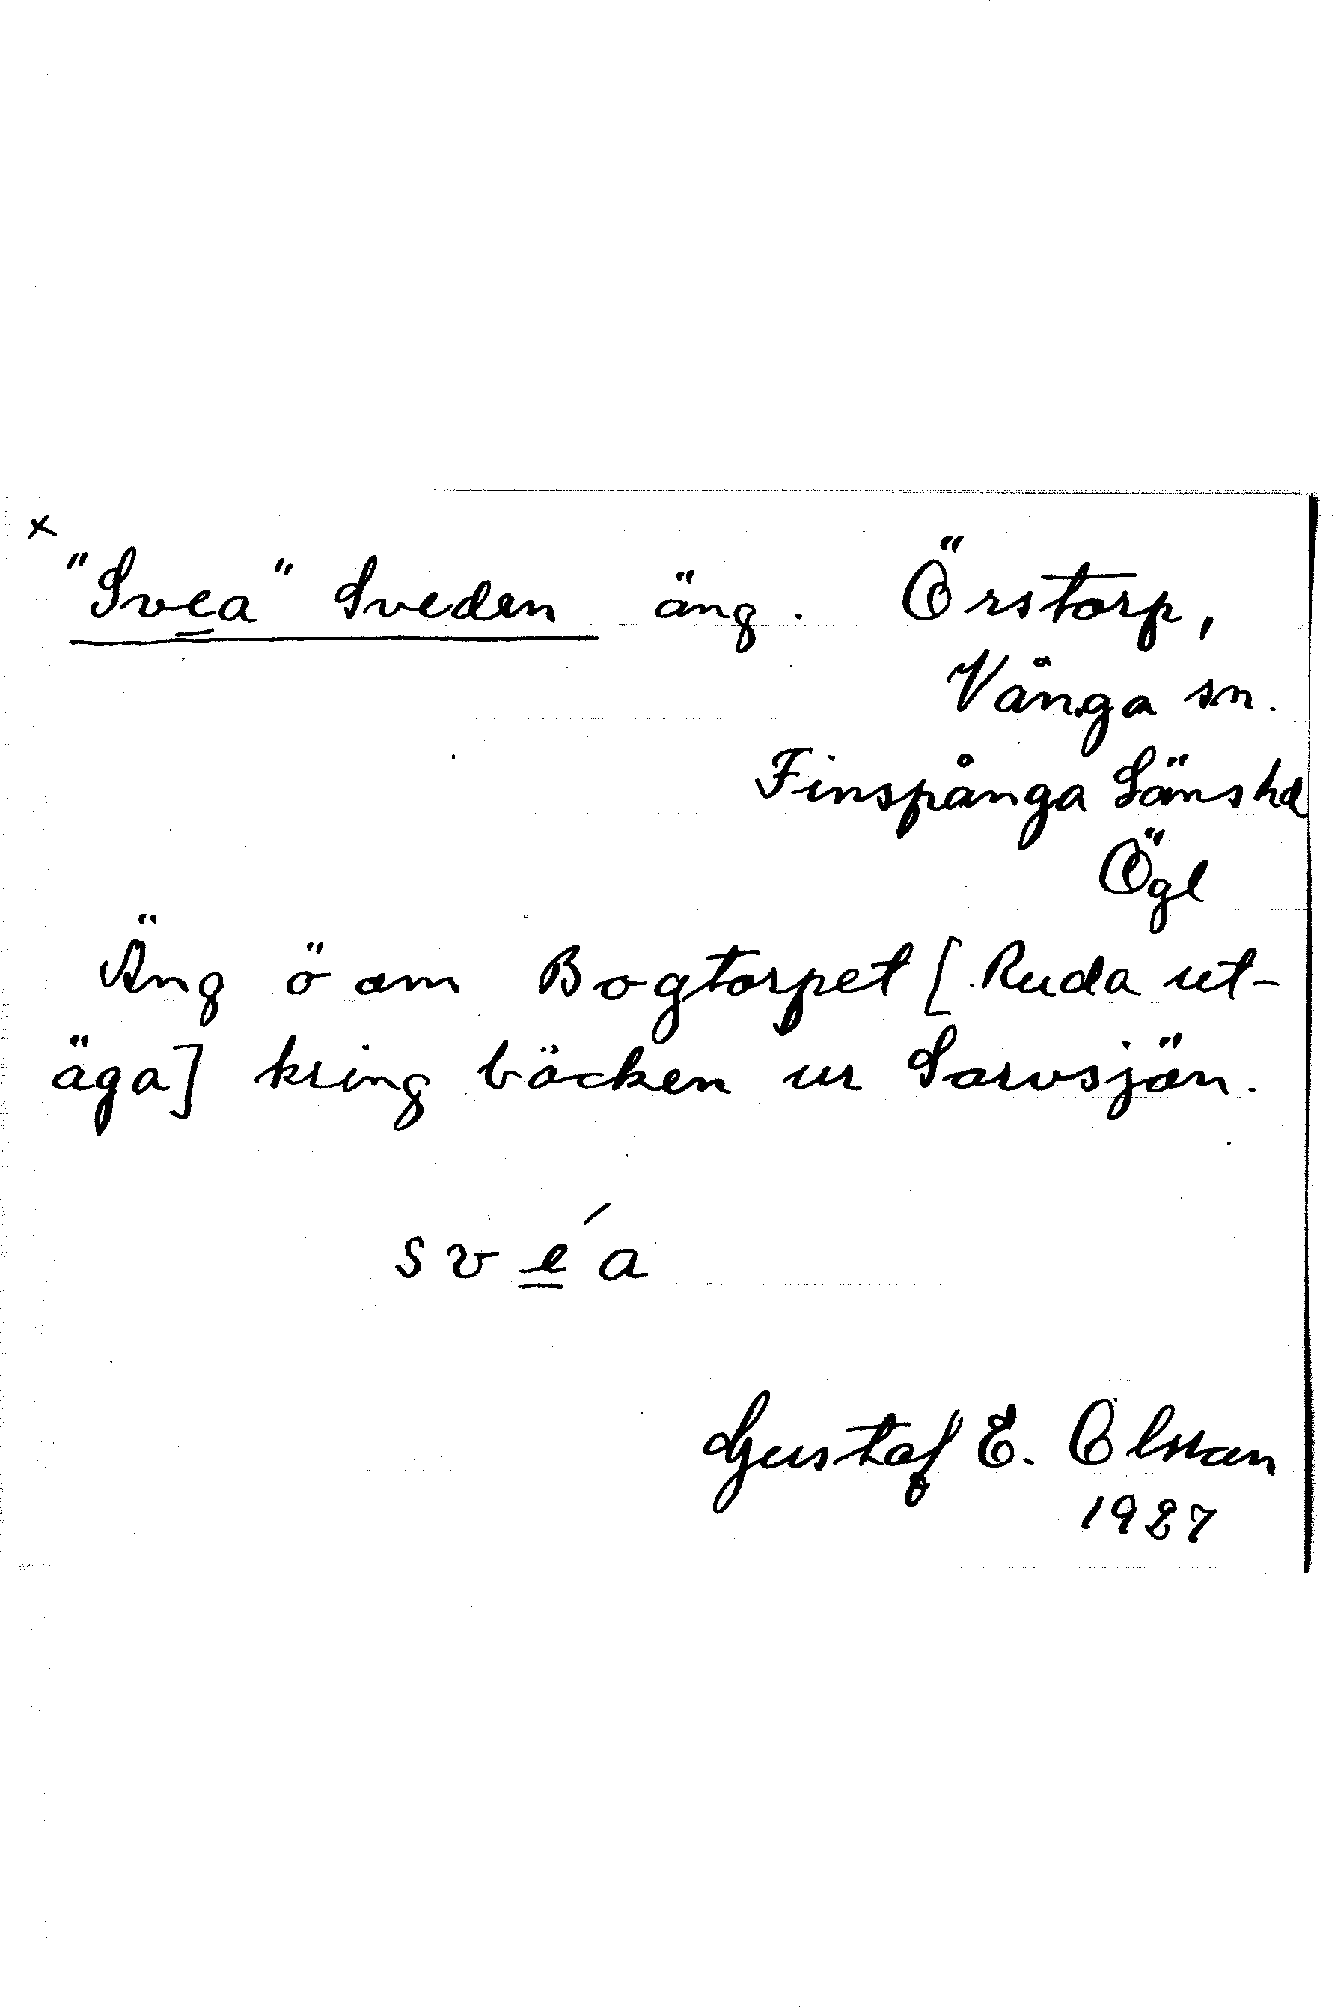 x
"Svea" Sveden äng. Örstorp,
Vånga sn.
Finspånga Länshd
Ögl
Äng ö om Bogtorpet [Ruda ut-
äga] kring bäcken ur Sarvsjön.
sve´a
Gustaf E. Olsson
1927